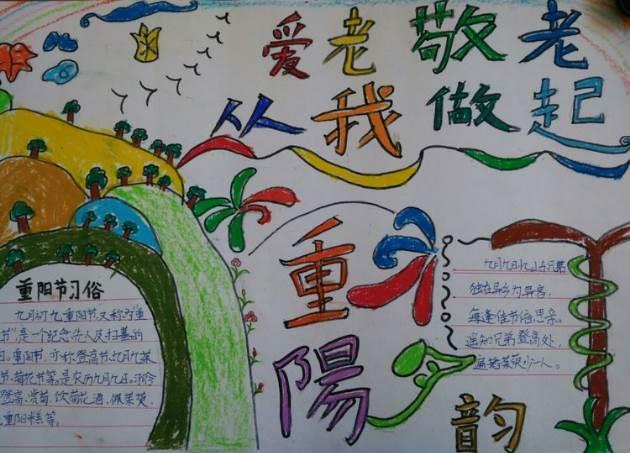 爱老敬老
从我做起
重阳节习俗
九月初九重阳节又称为重
节"是一个纪念先人及扫墓的
日。重阳节,亦称登高节、九月九、茱
节、菊花节等,是农历九月九日。
登高、赏菊、饮菊花酒、佩茱萸、
重阳糕等。
重
陽
韵
九月九日山东兄弟
独在异乡为异客,
每逢佳节倍思亲。
遥知兄弟登高处,
遍插茱萸少一人。